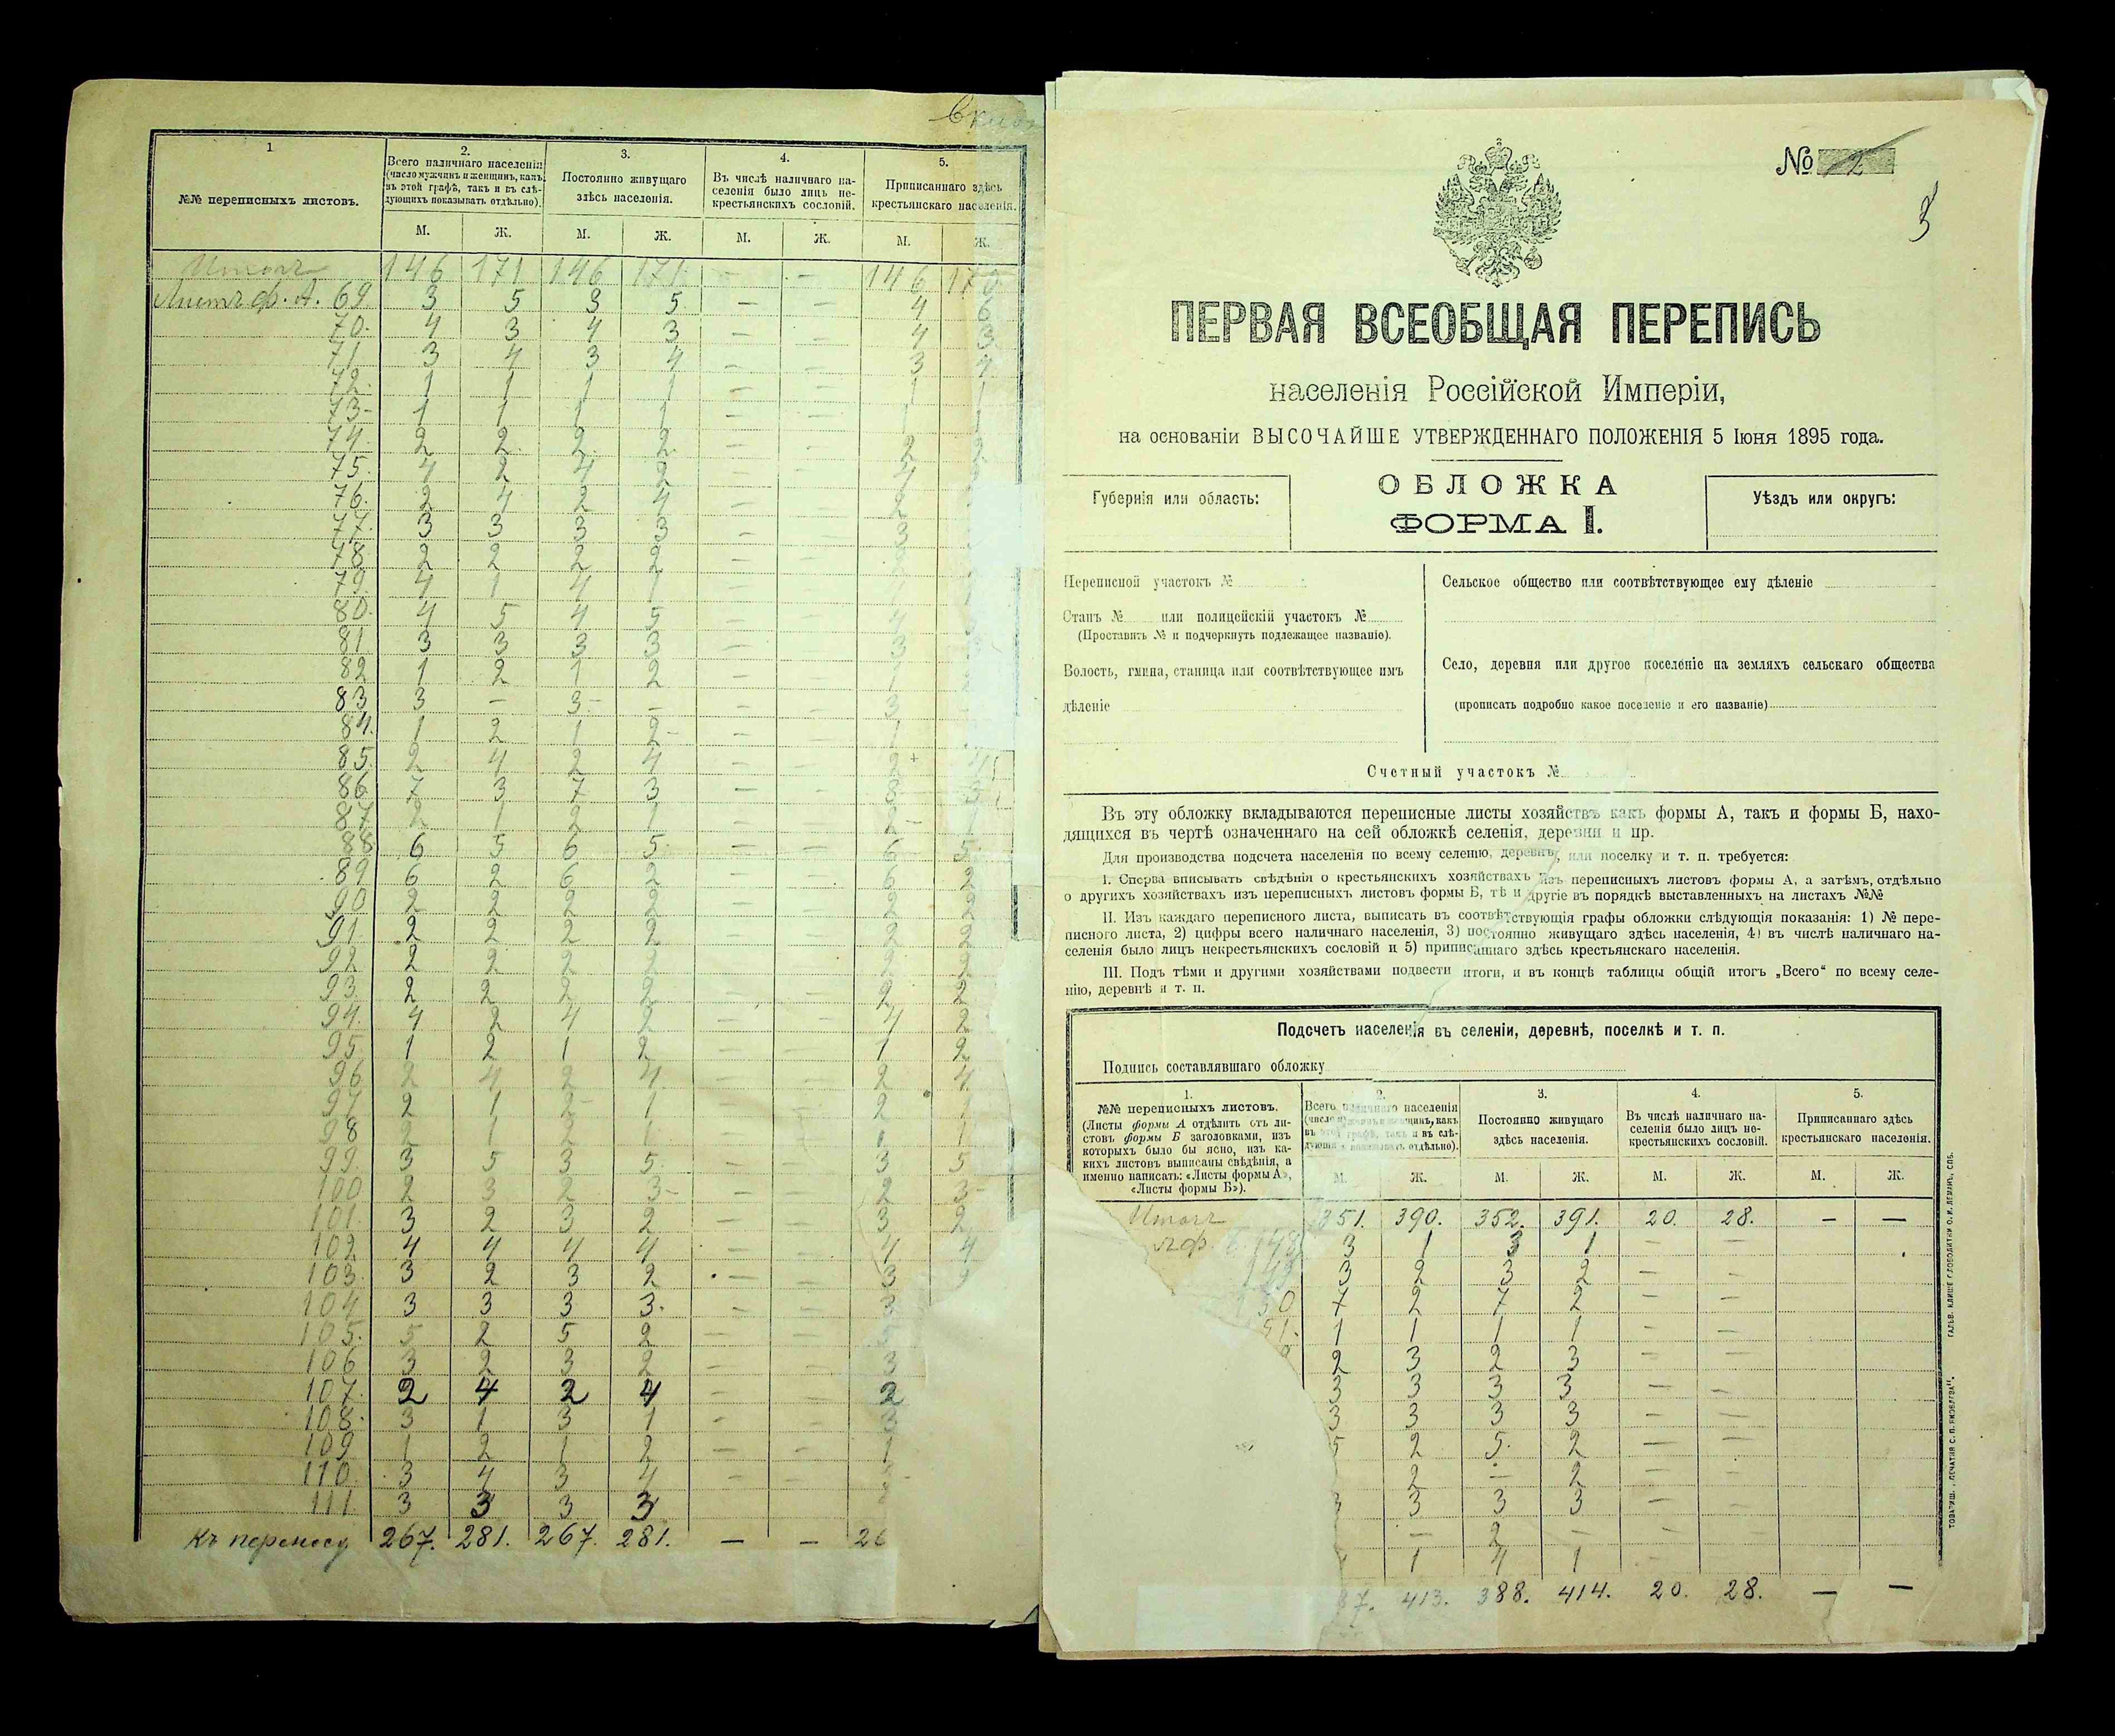 1.
2.
3.
4.
5.
№№ переписныхъ листовъ.
Всего наличнаго населенія
(число мужчинъ и женщинъ, какъ
въ этой графѣ, такъ и въ слѣ-
дующихъ показывать отдѣльно).
Постоянно живущаго
здѣсь населенія.
Въ числѣ наличнаго на-
селенія было лицъ не-
крестьянскихъ сословій.
Приписаннаго здѣсь
крестьянскаго населенія.
М. Ж. М. Ж. М. Ж. М. Ж.
Итого 146 171 146 171 - - 146 170
Листъ ф. А. 69 3 5 3 5 - - 4 6
70. 4 3 4 3 - - 4 3
71 3 4 3 4 - - 3 4
72. 1 1 1 1 - - 1 1
73- 1 1 1 1 - - 1 1
74. 2 2 2 2 - - 2 2
75. 4 2 4 2 - - 4
76. 2 4 2 4 - - 2
77. 3 3 3 3 - - 3
78 2 2 2 2 - -
79. 4 1 4 1 - -
80. 4 5 4 5 - - 4
81 3 3 3 3 - - 3
82 1 2 1 2 - - 1
83 3 - 3 - - - 3
84. 1 2 1 2 - - 1
85. 2 4 2 4 - - 2 4
86 7 3 7 3 - - 8 3
87 2 1 2 1 - - 2 1
88 6 5 6 5 - - 6 5
89 6 2 6 2 - - 6 2
90 2 2 2 2 - - 2 2
91. 2 2 2 2 - - 2 2
92 2 2 2 2 - - 2 2
93 2 2 2 2 - - 2 2
94. 4 2 4 2 - - 4 2
95. 1 2 1 2 - - 1 2
96 2 4 2 4 - - 2 4
97 2 1 2 1 - - 2 1
98 2 1 2 1 - - 2 1
99. 3 5 3 5 - - 3 5
100 2 3 2 3 - - 2 3
101. 3 2 3 2 - - 3 2
102 4 4 4 4 - - 4 4
103. 3 2 3 2 - - 3
104 3 3 3 3. - - 3
105. 5 2 5 2 - -
106 3 2 3 2 - - 3
107. 2 4 2 4 - - 2
108. 3 1 3 1 - - 3
109 1 2 1 2 - - 1
110. 3 4 3 4 - -
111. 3 3 3 3 - -
Къ переносу 267. 281. 267. 281. - - 26
№ 2
3
ПЕРВАЯ ВСЕОБЩАЯ ПЕРЕПИСЬ
населенія Россійской Имперіи,
на основаніи ВЫСОЧАЙШЕ УТВЕРЖДЕННАГО ПОЛОЖЕНІЯ 5 Іюня 1895 года.
Губернія или область:
ОБЛОЖКА
ФОРМА I.
Уѣздъ или округъ:
Переписной участокъ №
Станъ № или полицейскій участокъ №
(Проставить № и подчеркнуть подлежащее названіе).
Волость, гмина, станица или соотвѣтствующее имъ
дѣленіе
Сельское общество или соотвѣтствующее ему дѣленіе
Село, деревня или другое поселеніе на земляхъ сельскаго общества
(прописать подробно какое поселеніе и его названіе)
Счетный участокъ №
Въ эту обложку вкладываются переписные листы хозяйствъ какъ формы А, такъ и формы Б, нахо-
дящихся въ чертѣ означеннаго на сей обложкѣ селенія, деревни и пр.
Для производства подсчета населенія по всему селенію, деревнѣ, или поселку и т. п. требуется:
I. Сперва вписывать свѣдѣнія о крестьянскихъ хозяйствахъ изъ переписныхъ листовъ формы А, а затѣмъ, отдѣльно
о другихъ хозяйствахъ изъ переписныхъ листовъ формы Б, тѣ и другіе въ порядкѣ выставленныхъ на листахъ №№
II. Изъ каждаго переписного листа, выписать въ соотвѣтствующія графы обложки слѣдующія показанія: 1) № пере-
писного листа, 2) цифры всего наличнаго населенія, 3) постоянно живущаго здѣсь населенія, 4) въ числѣ наличнаго на-
селенія было лицъ некрестьянскихъ сословій и 5) приписаннаго здѣсь крестьянскаго населенія.
III. Подъ тѣми и другими хозяйствами подвести итоги, и въ концѣ таблицы общій итогъ „Всего“ по всему селе-
нію, деревнѣ и т. п.
Подсчетъ населенія въ селеніи, деревнѣ, поселкѣ и т. п.
Подпись составлявшаго обложку
1.
№№ переписныхъ листовъ.
(Листы формы А отдѣлить отъ ли-
стовъ формы Б заголовками, изъ
которыхъ было бы ясно, изъ ка-
кихъ листовъ выписаны свѣдѣнія, а
именно написать: «Листы формы А»,
«Листы формы Б»).
2.
Всего наличнаго населенія
(число мужчинъ и женщинъ, какъ
въ этой графѣ, такъ и въ слѣ-
дующихъ показывать отдѣльно).
3.
Постоянно живущаго
здѣсь населенія.
4.
Въ числѣ наличнаго на-
селенія было лицъ не-
крестьянскихъ сословій.
5.
Приписаннаго здѣсь
крестьянскаго населенія.
М. Ж. М. Ж. М. Ж. М. Ж.
Итого 351. 390. 352. 391. 20. 28. - -
148 3 1 3 1 - -
149 3 2 3 2 - -
150 7 2 7 2 - -
51. 1 1 1 1 - -
2 3 2 3 - -
3 3 3 3 - -
3 3 3 3 - -
5 2 5. 2 - -
2 - 2 - -
3 3 3 - -
- 2 - - -
1 4 1 - -
87. 413. 388. 414. 20. 28. - -
ТОВАРИЩ. „ПЕЧАТНЯ С. П. ЯКОВЛЕВА“. ГАЛЬВ. КЛИШЕ СЛОВОЛИТНИ О. И. ЛЕМАНЪ, СПБ.